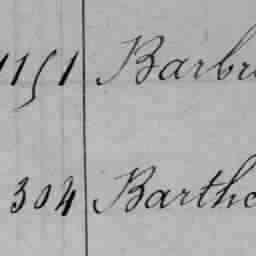 1151 Barbr
304 Barthe